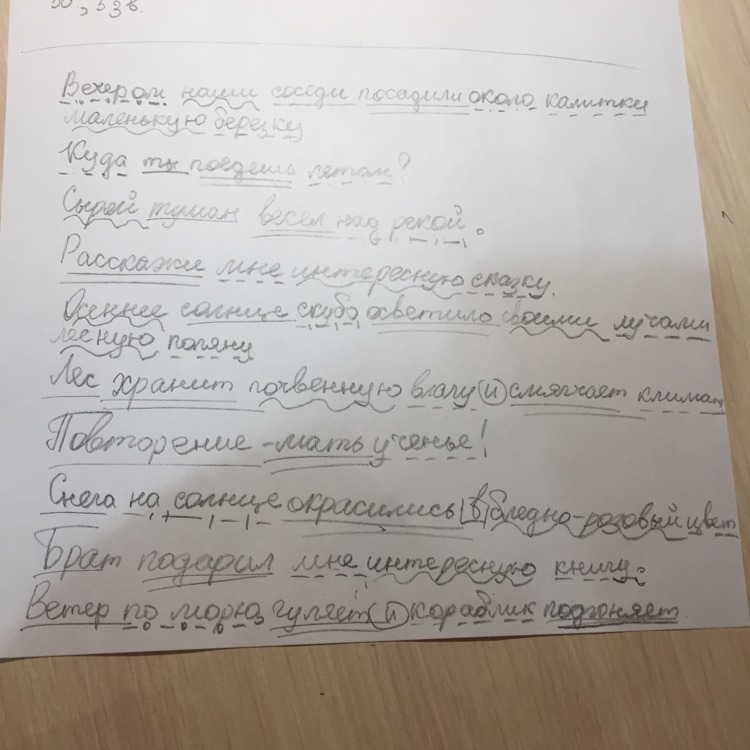 50, 53 в.
Вечером наши соседи посадили около калитки
маленькую березку
Куда ты поедешь летом?
Сырой туман весел над рекой.
Расскажи мне интересную сказку.
Осеннее солнце скубо осветило своими лучами
лесную поляну
Лес хранит почвенную влагу и смягчает климат
Повторение - мать ученье!
Снега на солнце окрасились в бледно-розовый цвет
Брат подарил мне интересную книгу.
Ветер по морю гуляет и кораблик подгоняет